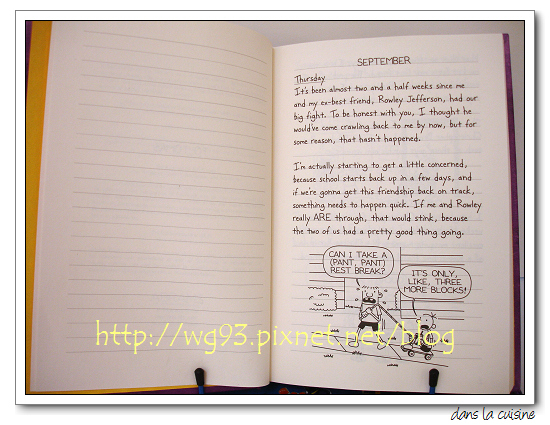 SEPTEMBER
Thursday
It's been almost two and a half weeks since me
and my ex-best friend, Rowley Jefferson, had our
big fight. To be honest with you, I thought he
would've come crawling back to me by now, but for
some reason, that hasn't happened.
I'm actually starting to get a little concerned,
because school starts back up in a few days, and
if we're gonna get this friendship back on track,
something needs to happen quick. If me and Rowley
really ARE through, that would stink, because
the two of us had a pretty good thing going.
CAN I TAKE A
(PANT, PANT)
REST BREAK?
IT'S ONLY,
LIKE, THREE
MORE BLOCKS!
http://wg93.pixnet.net/blog
dans la cuisine